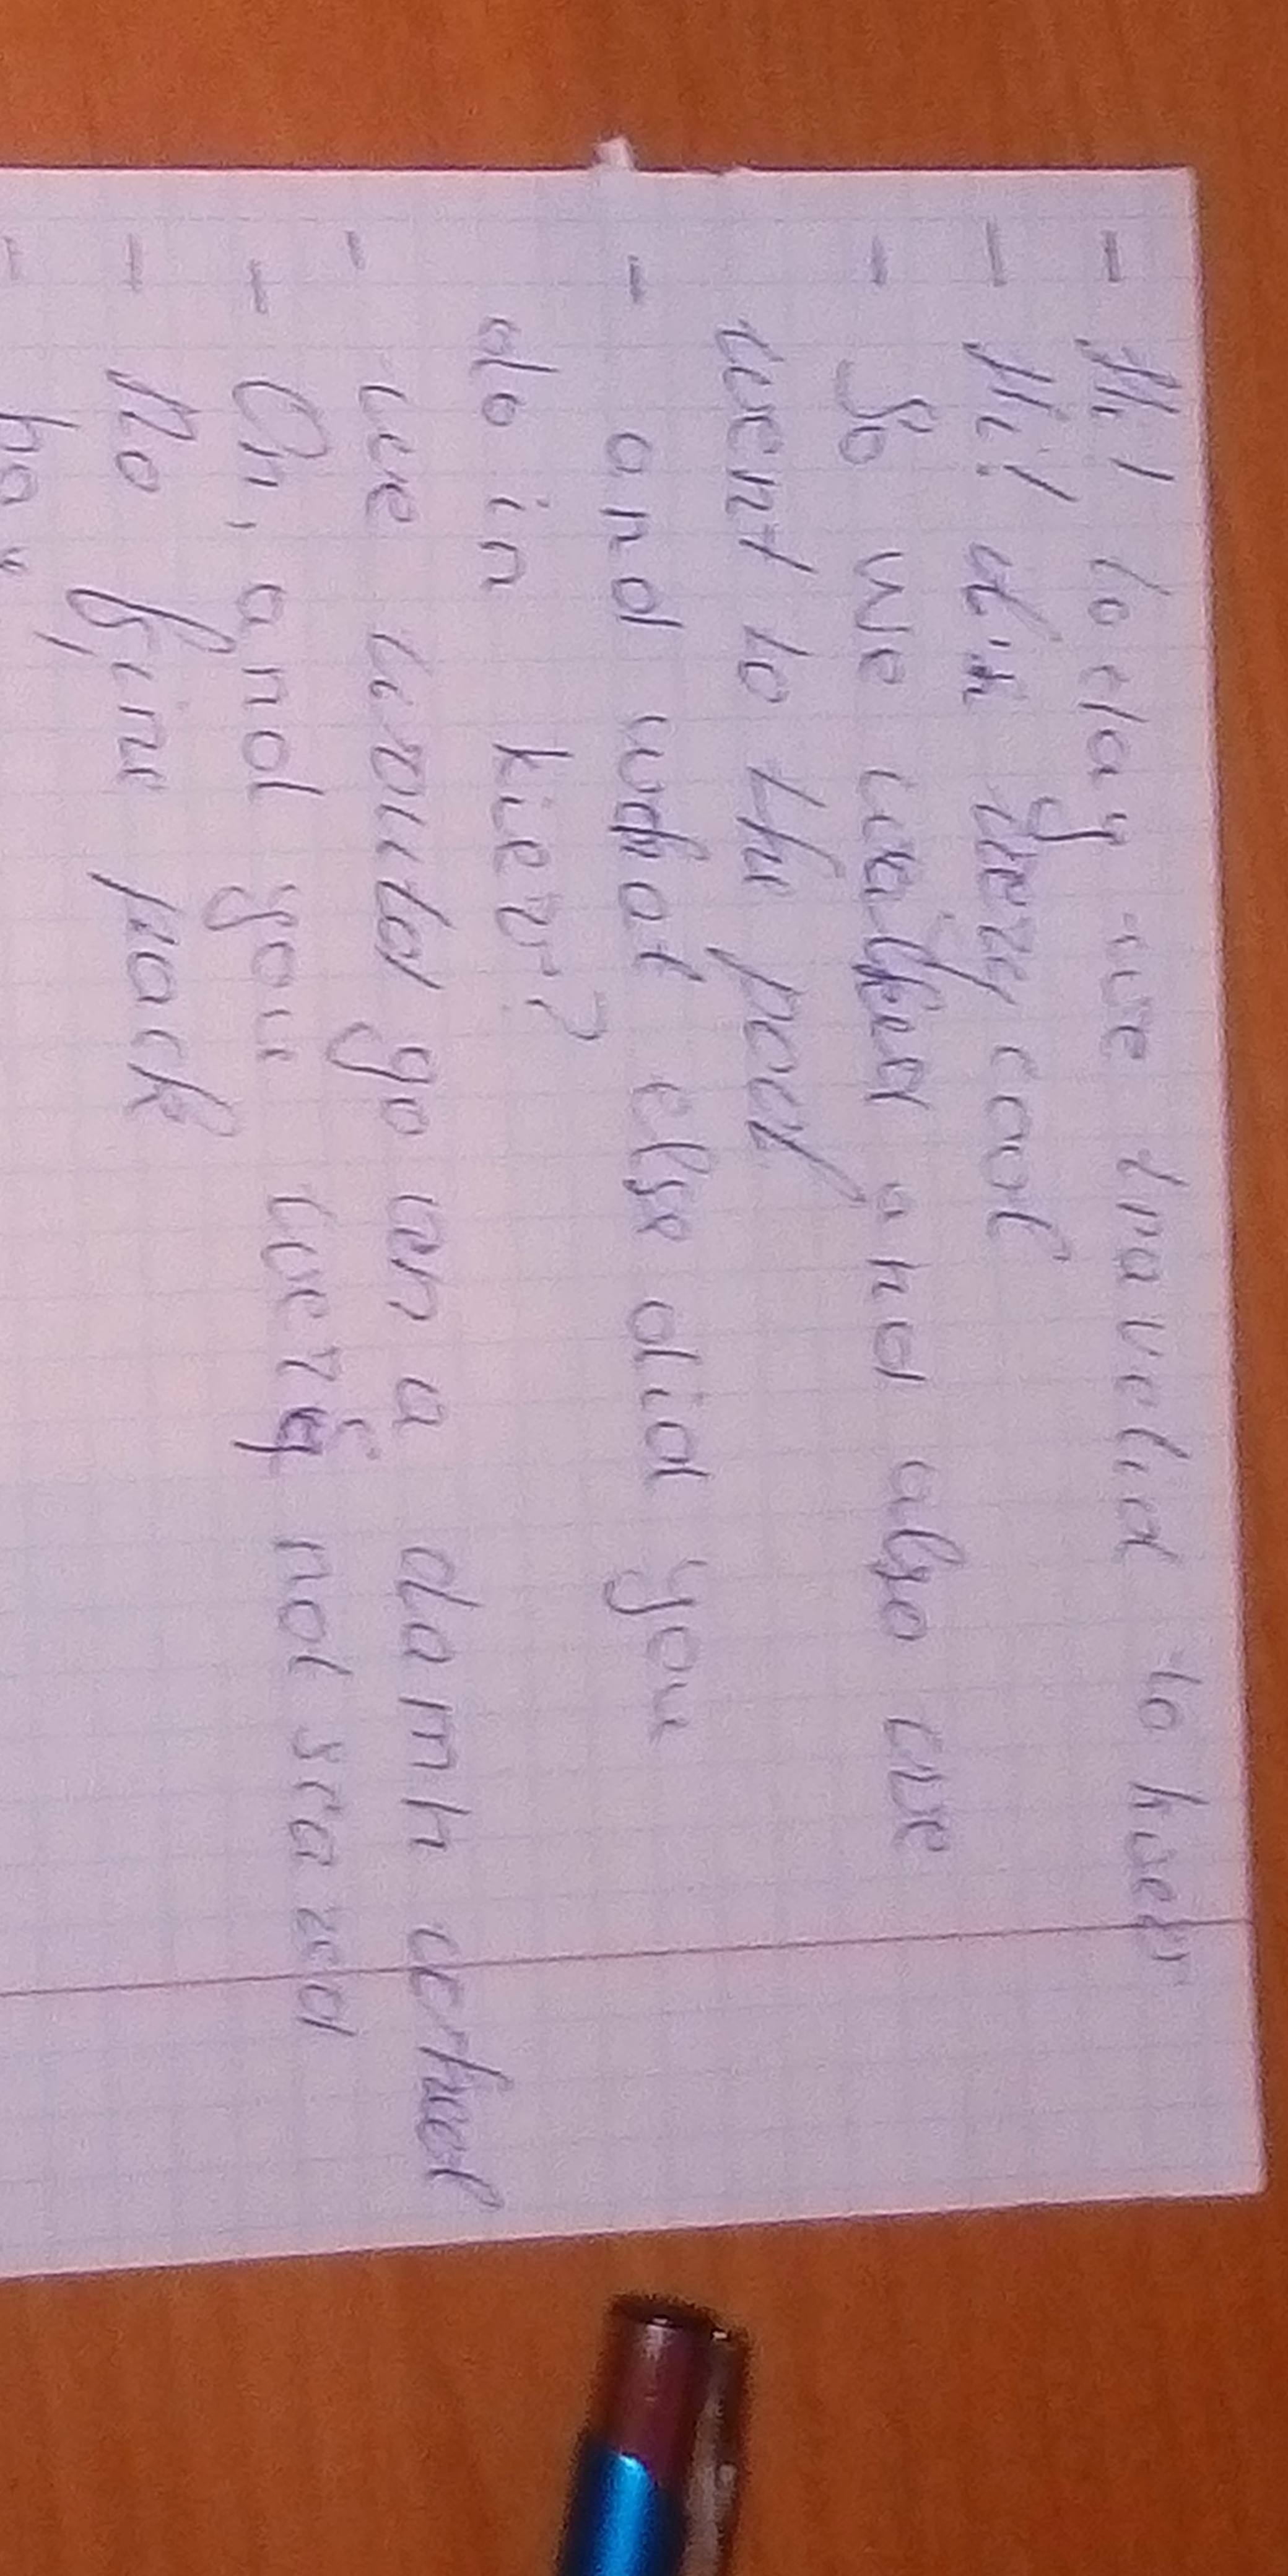 - Hi! today we travelid to kiev
- Hi! it is very cool
- So we walked and also we
went to the pool
- and what else did you
do in kiev?
- we would go on a damn wheel
- Oh, and you were not scared
- no fine